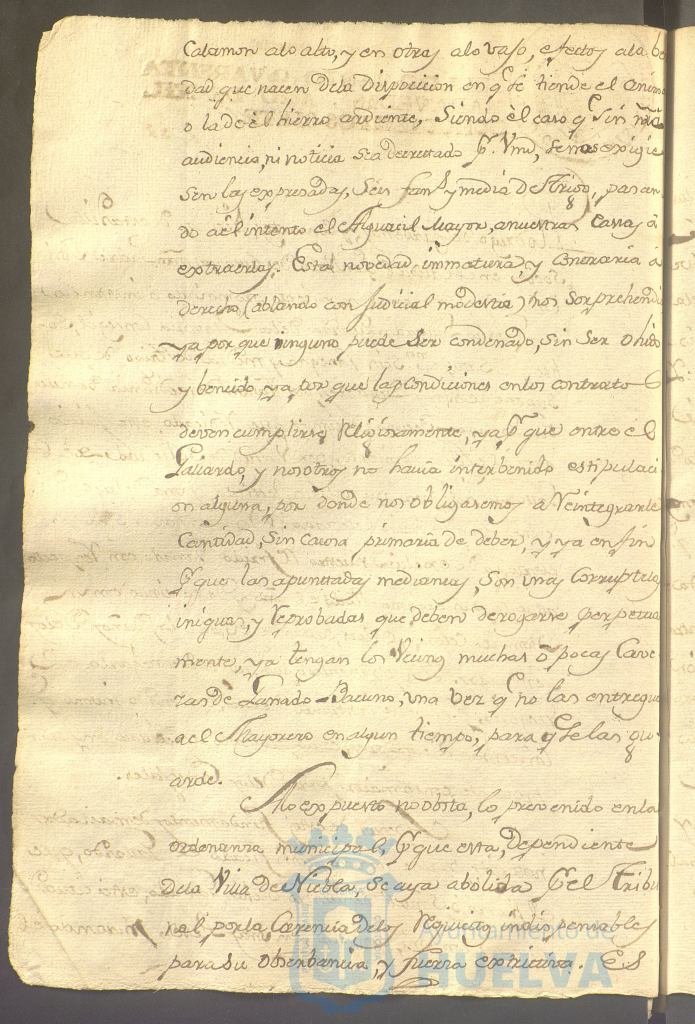 Calamon alo alto, y en otras alo vaso, efectos ala be
dad que nacen dela Disposicion en q.e se tiende el
o la de el hierro ardiente, Siendo el caso q.e Sin nrã
audiencia, ni noticia sea decretado p.r Vmd, se nos exigie
Sen las expresadas, Seis fan.s y media de Trigo, pasan
do a èl intento el Alguacil Mayor, a nuestras Casas à
extraerlas. Esta novedad immatura, y Contraria à
derecho (ablando con Judicial modestia) nos Sorprehendi
ya por que ninguno puede Ser condenado, Sin Ser Ohido
y bencido, ya por que las Condiciones en los contratos
deven cumplirse Religiosamente, ya p.r que entre el
Gallardo, y nosotros no havia interbenido estipulaci
on alguna, por donde nos obligasemos a Reintegrarle
Cantidad, Sin Causa primaria de deber, y ya en fin
p.r que las apuntadas medianias, Son unas Corruptelas
iniquas, y Reprobadas que deben derogarse perpetua
mente, ya tengan los Vecinos muchas ò pocas Cave
zas de Ganado Bacuno, una vez q.e no las entregue
a el Mayorero en algun tiempo, para q.e Se las gu
arde.
Alo expuesto no obsta, lo prevenido en la
ordenanza municipal, p.r que esta, dependiente
dela Villa de Niebla, Se aya abolida p.r el Tribu
nal por la Carencia delos Requisitos indispensables
para su obserbancia, y fuerza extrictiva. Es
Ayuntamiento de
HUELVA